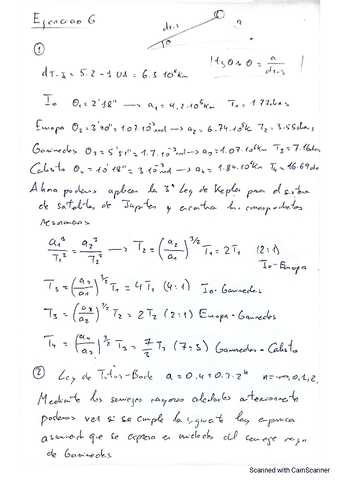 Ejercicio 6
d_T-J
a
θ
①
| tg θ ≈ θ = a / d_T-J |
d_T-J = 5.2 - 1 UA = 6.3 10⁸ km
Io θ₁ = 2'18'' → a₁ = 4.2·10⁵ km T₁ = 1.77 días
Europa θ₂ = 3'40'' = 1.07·10⁻³ rad → a₂ = 6.74·10⁵ km T₂ = 3.55 días
Ganimedes θ₃ = 5'51'' = 1.7·10⁻³ rad → a₃ = 1.07·10⁶ km T₃ = 7.16 días
Calisto θ₄ = 10'18'' = 3·10⁻³ rad → a₄ = 1.84·10⁶ km T₄ = 16.69 días
Ahora podemos aplicar la 3ª Ley de Kepler para el sistema
de satélites de Júpiter y encontrar las correspondientes
resonancias
a₁³/T₁² = a₂³/T₂² → T₂ = (a₂/a₁)^3/2 T₁ = 2T₁ (2:1)
Io-Europa
T₃ = (a₃/a₁)^3/2 T₁ = 4 T₁ (4:1) Io-Ganimedes
T₃ = (a₃/a₂)^3/2 T₂ = 2 T₂ (2:1) Europa-Ganimedes
T₄ = (a₄/a₃)^3/2 T₃ = 7/3 T₃ (7:3) Ganimedes-Calisto
② Ley de Titius-Bode a = 0.4 + 0.3·2ⁿ n = -∞, 0, 1, 2,
Mediante los semiejes mayores calculados anteriormente
podemos ver si se cumple la siguiente ley empírica
asumiendo que se expresa en unidades del semieje mayor
de Ganimedes
Scanned with CamScanner